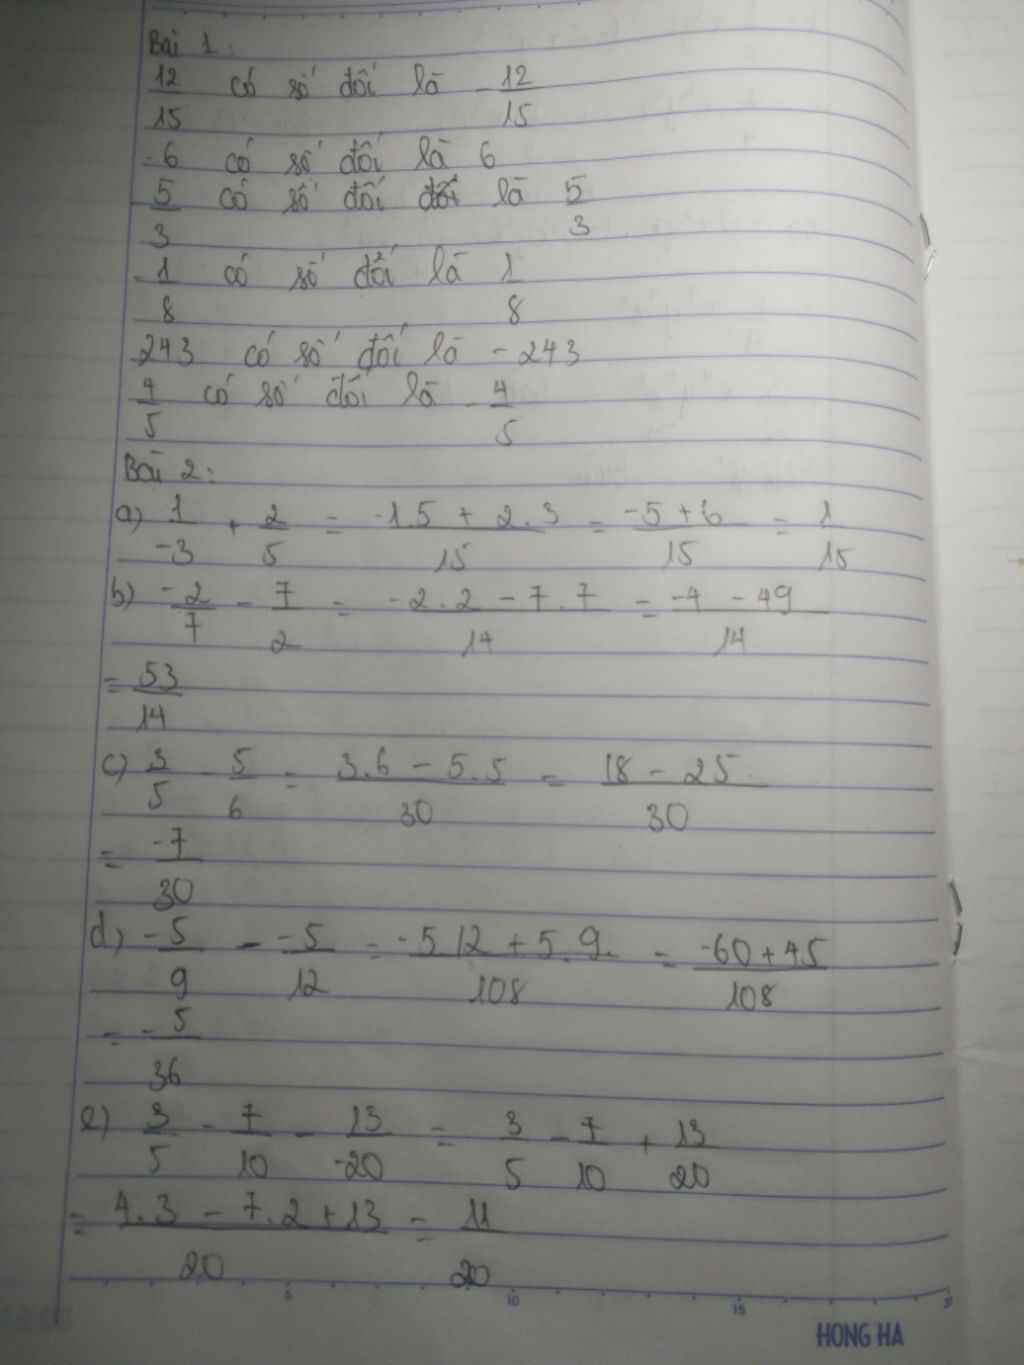 Bài 1:
12/15 có số đối là -12/15
-6 có số đối là 6
-5/3 có số đối đối là 5/3
-1/8 có số đối là 1/8
243 có số đối là -243
4/5 có số đối là -4/5
Bài 2:
a) 1/-3 + 2/5 = (-1.5 + 2.3)/15 = (-5+6)/15 = 1/15
b) -2/7 - 7/2 = (-2.2 - 7.7)/14 = (-4 - 49)/14
= 53/14
c) 3/5 - 5/6 = (3.6 - 5.5)/30 = (18 - 25)/30
= -7/30
d) -5/9 - -5/12 = (-5.12 + 5.9.)/108 = (-60+45)/108
= -5/36
e) 3/5 - 7/10 - 13/-20 = 3/5 - 7/10 + 13/20
= (4.3 - 7.2 + 13)/20 = 11/20
5 10 15 20
HONG HA